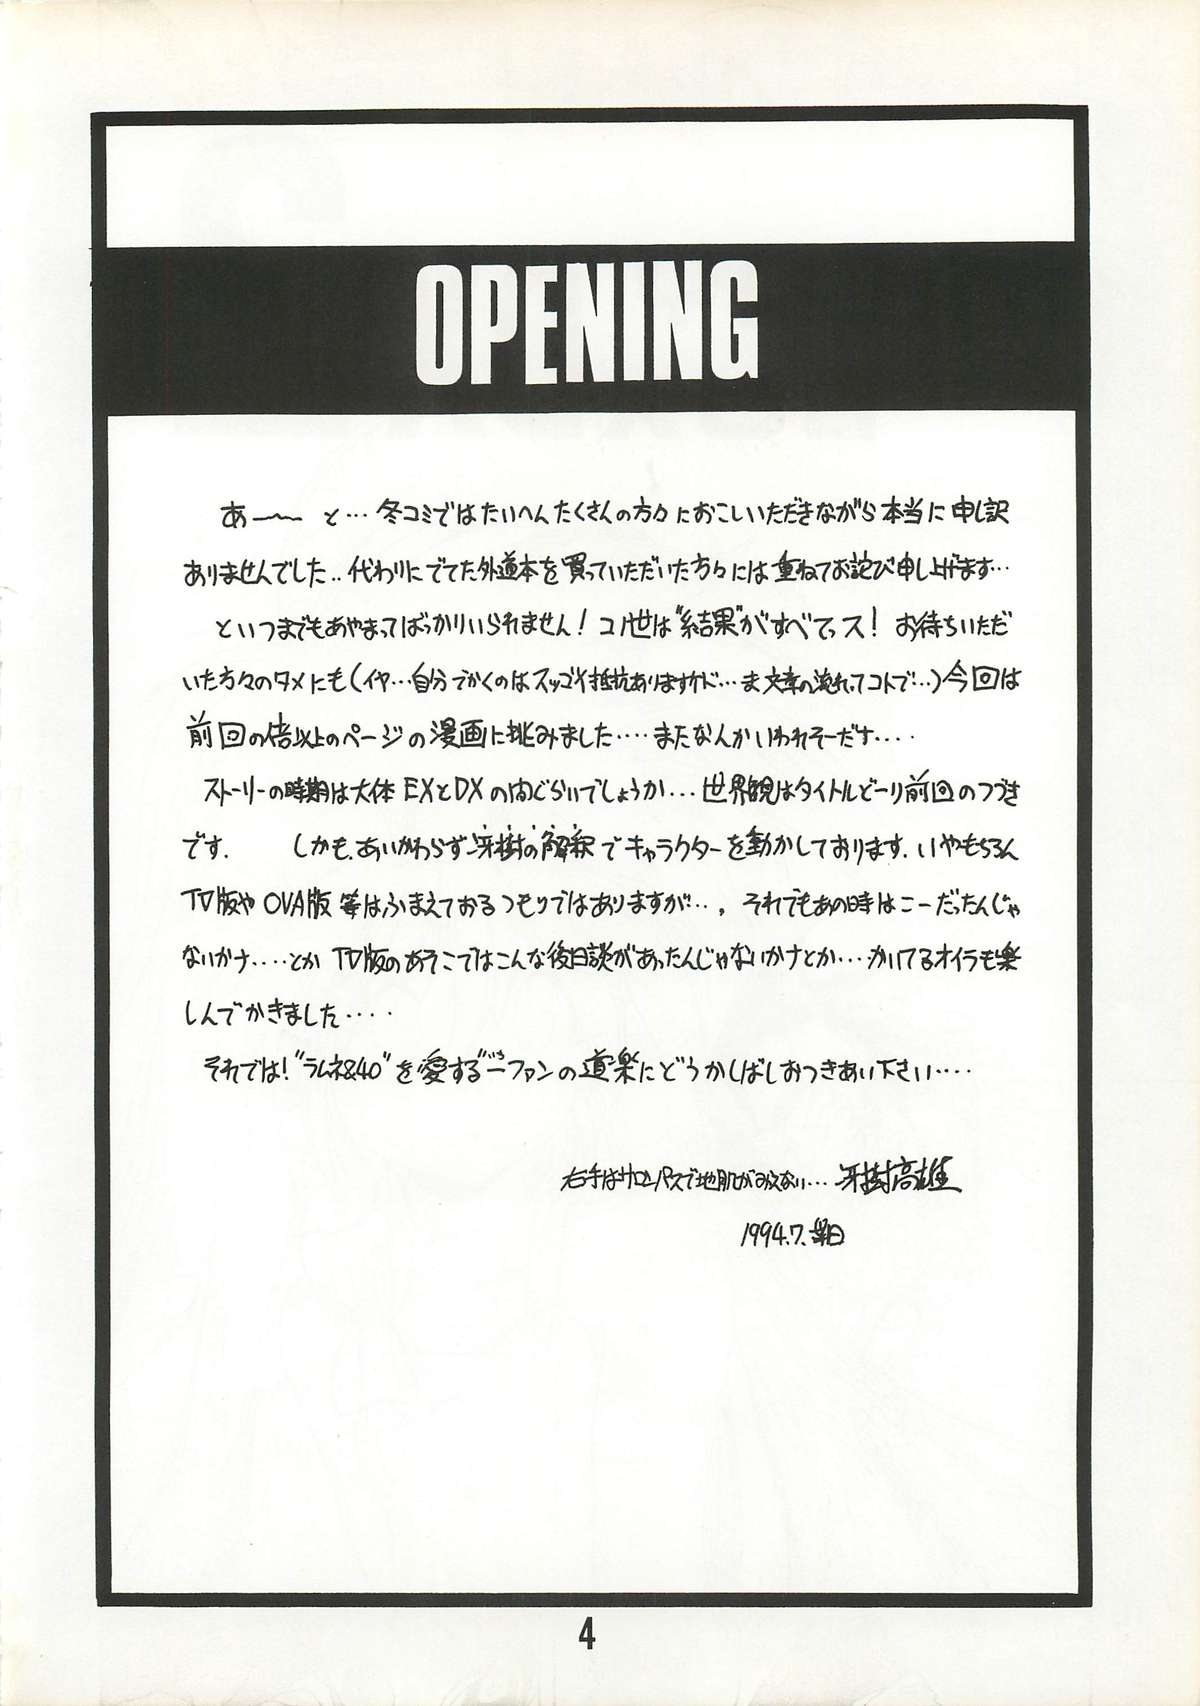 OPENING
あ〜〜 と…冬コミではたいへんたくさんの方々におこしいただきながら本当に申し訳
ありませんでした..代わりにでてた外道本を買っていただいた方々には重ねてお詫び申し上げます…
といつまでもあやまってばっかりいられません!コノ世は"結果"がすべてっス!お待ちいただ
いた方々のタメにも(イヤ…自分でかくのはスッゴイ抵抗ありますけド…ま文章の流れってコトで…)今回は
前回の倍以上のページの漫画に挑みました....またなんかいわれそーだす....
ストーリーの時期は大体EXとDXの間ぐらいでしょうか...世界観はタイトルどーり前回のつづき
です. しかも、あいかわらず牙樹の解釈でキャラクターを動かしております.いやもちろん
TV版やOVA版等はふまえておるつもりではありますが…、それでもあの時はこーだったんじゃ
ないかナ....とか TV版のあそこではこんな後日談があったんじゃないかナとか...かいてるオイラも楽
しんでかきました....
それでは!"ラムネ&40"を愛する一ファンの道楽にどうかしばしおつきあい下さい....
右手はサロンパスで地肌がみえない...牙樹高雄
1994.7.
4